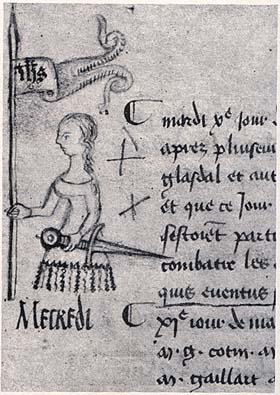 IHS
mardi xe Jour
aprez pluiseu
glasdal et aut
et que ce Jour
sestoiēt parti
combatre les
quis eventus
MECREDI
xie iour de ma
m. g. cotin. m
m. gaillart